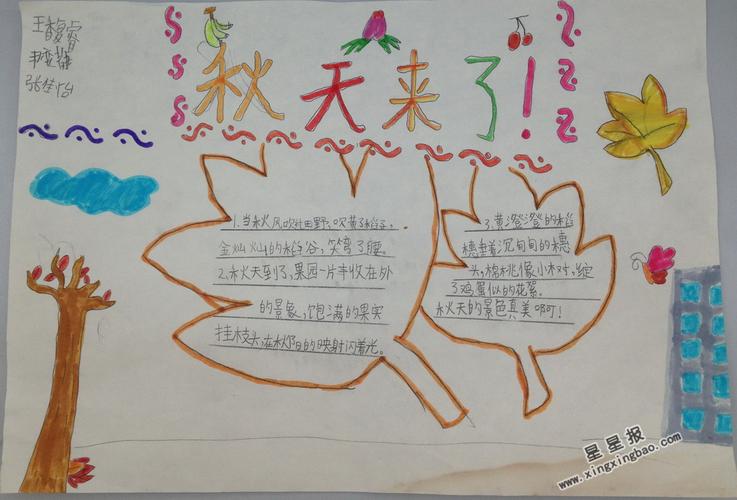 王馥睿
张佳怡
秋天来了!
1.当秋风吹过田野,吹黄了稻子,
金灿灿的稻谷,笑弯了腰。
2.秋天到了,果园一片丰收在外
的景象,饱满的果实
挂枝头,在秋阳的映射闪着光。
3.黄澄澄的稻
穗垂着沉甸甸的穗
头,棉桃像小树,绽
了鸡蛋似的花絮。
秋天的景色真美啊!
星星报
www.xingxingbao.com